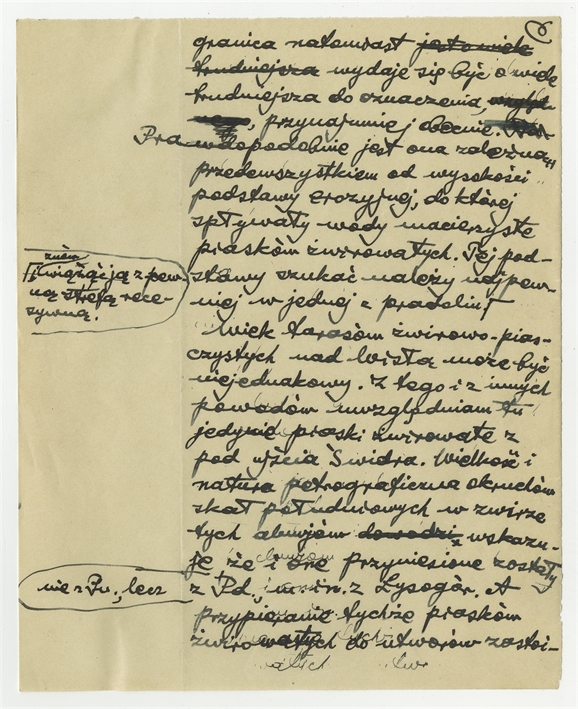 6
granica natomiast jest o wiele
trudniejsza wydaje się być o wiele
trudniejsza do oznaczenia,
, przynajmniej obecnie.
Prawdopodobnie jest ona zależna
przedewszystkiem od wysokości
podstawy erozyjnej, do której
spływały wody macierzyste
piasków żwirowatych. Tej pod-
stawy szukać należy najpew-
niej w jednej z pradolin
wiążąc ją z pew-
ną strefą rece-
sywną.
Wiek tarasów żwirowo-pias-
czystych nad Wisłą może być
niejednakowy. Z tego i z innych
powodów uwzględniam tu
jedynie piaski żwirowate z
pod ujścia Świdra. Wielkość i
natura petrograficzna okruchów
skał południowych w żwirze
tych aluwjów dowodzi wskazu-
je że i one przyniesione zostały
nie z Pn., lecz
z Pd., m.in. z Łysogór. A
przypieranie tychże piasków
żwirowatych do utworów zastoi-